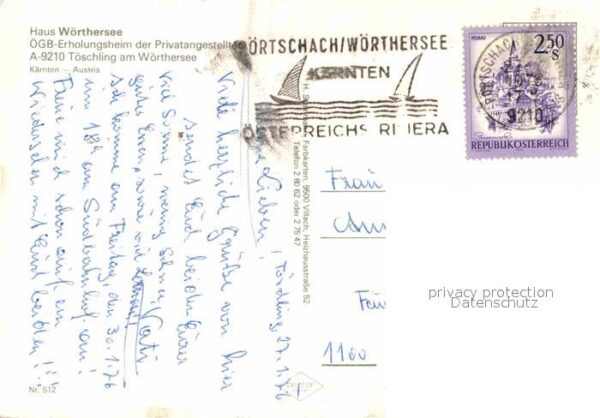 Haus Wörthersee
ÖGB-Erholungsheim der Privatangestellten
A-9210 Töschling am Wörthersee
Kärnten – Austria
PÖRTSCHACH/WÖRTHERSEE
KÄRNTEN
ÖSTERREICHS RIVIERA
PÖRTSCHACH
9210
MURAU
2.50
S
REPUBLIK ÖSTERREICH
Töschling, 27.1.76
Liebe Lieben!
Viele herzliche Grüße von hier
sendet Euch beiden Eurer
Vati
Viel Sonne, wenig Schnee,
Ich komme am Freitag, den 30.1.76
um 18h am Südbahnhof an!
Freue mich schon auf ein
Wiedersehen mit Euch beiden!!!
Farbkarten, 9500 Villach, Heizhausstraße 52
Telefon 2 60 62 oder 2 75 47
Frau
1100
Nr. 512
privacy protection
Datenschutz